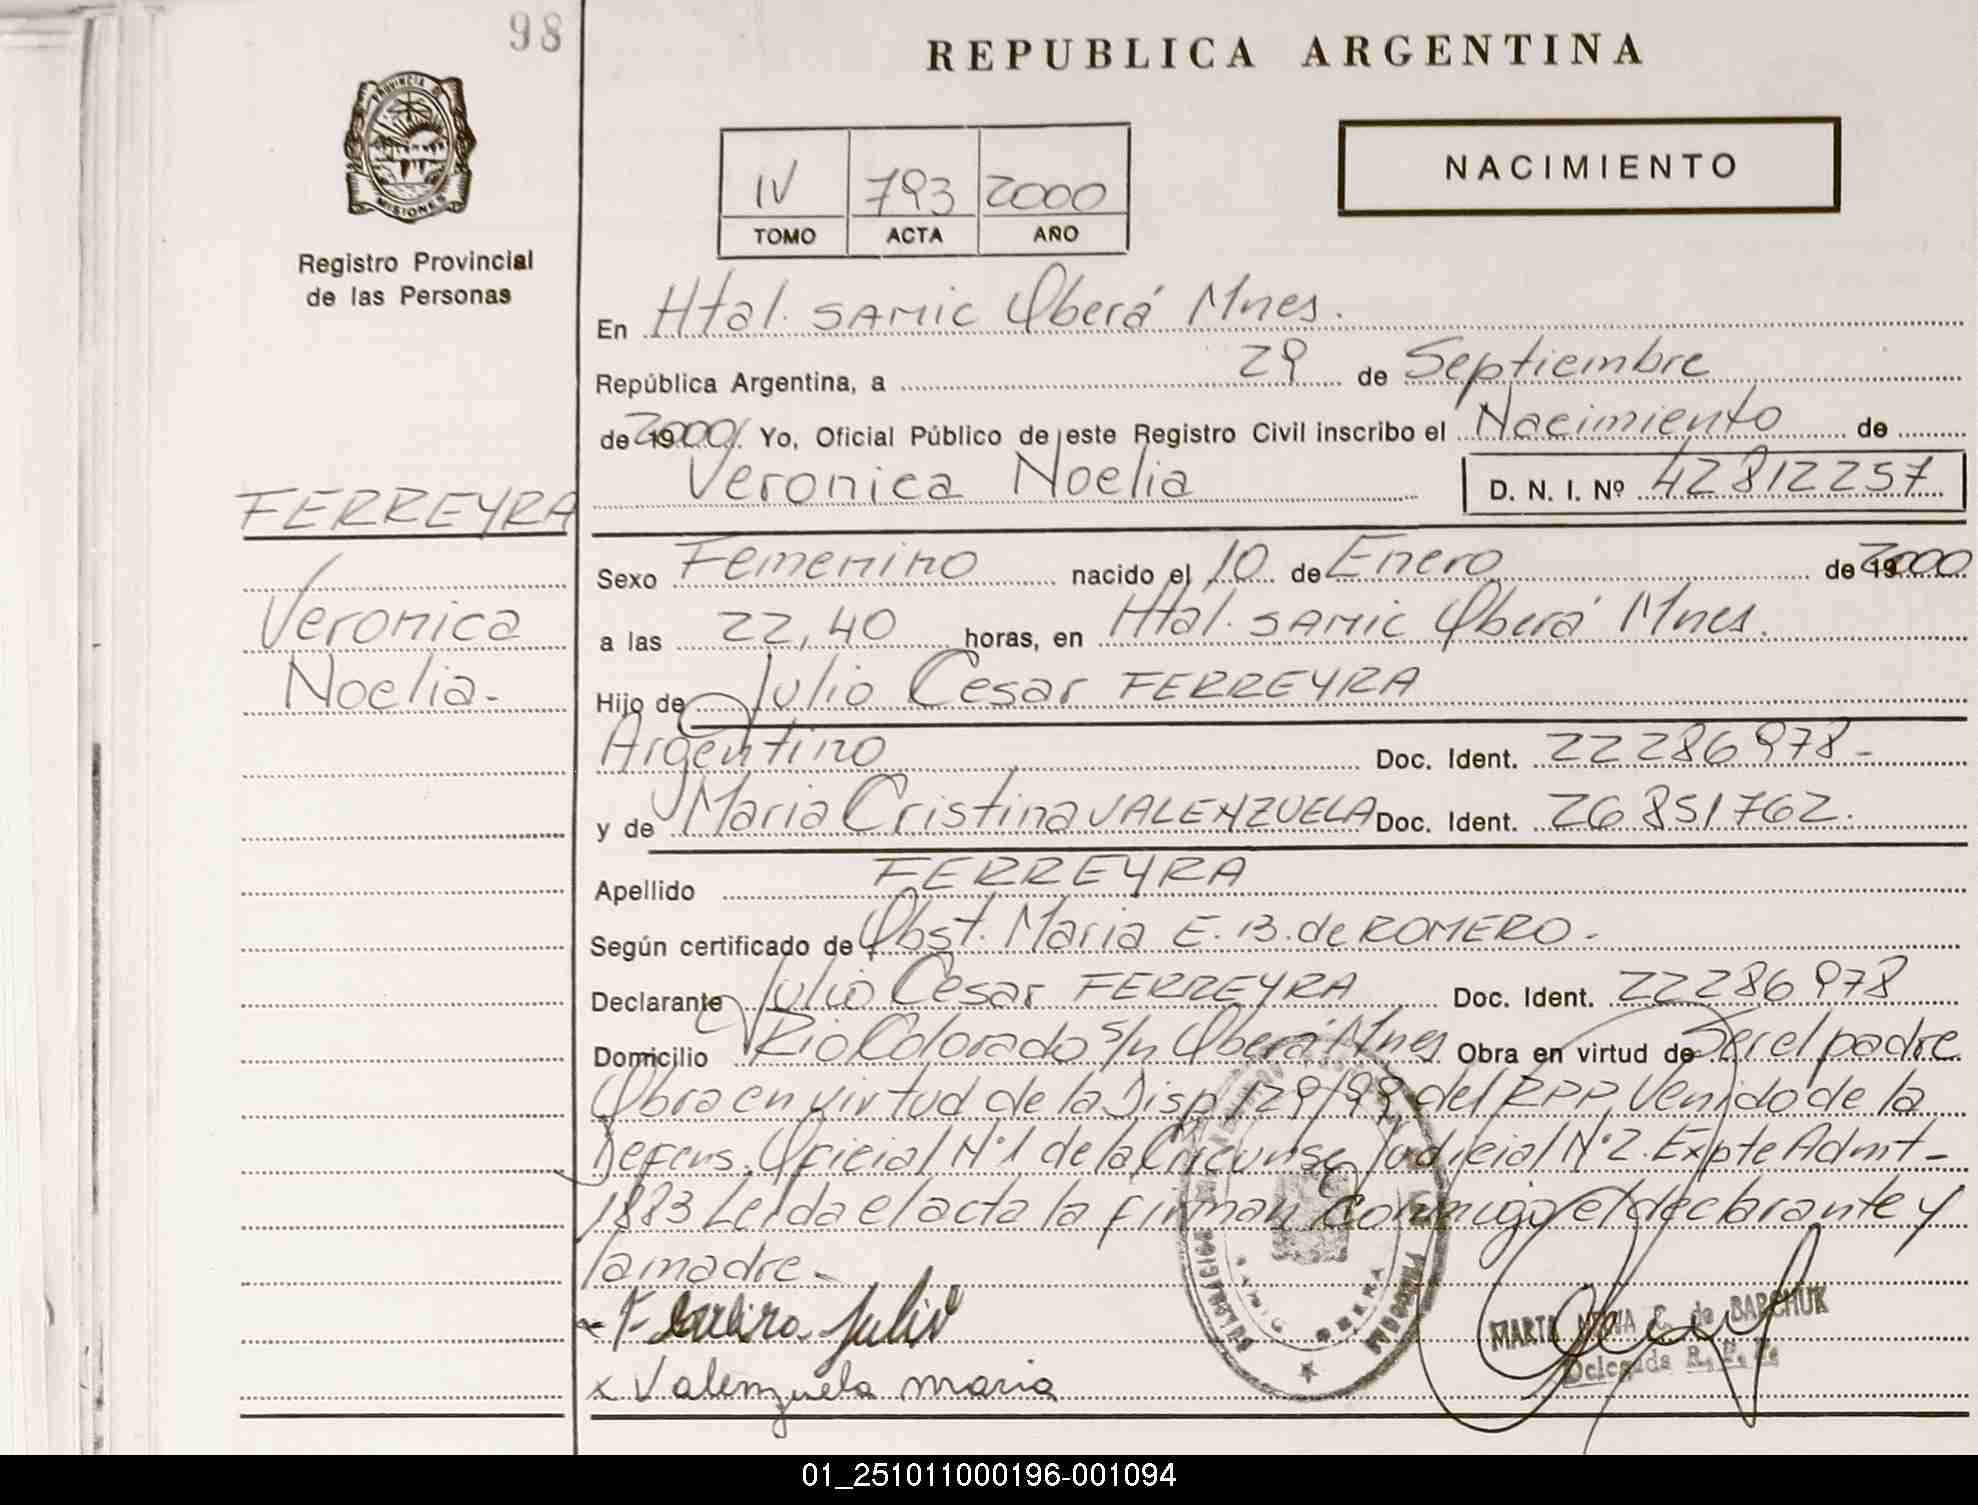 98
REPUBLICA ARGENTINA
PROVINCIA DE
MISIONES
Registro Provincial
de las Personas
NACIMIENTO
IV 793 2000
TOMO ACTA AÑO
En Htal. SAMIC Oberá Mnes.
República Argentina, a 29 de Septiembre
de 2000 Yo, Oficial Público de este Registro Civil inscribo el Nacimiento de
Veronica Noelia D. N. I. Nº 42812257
FERREYRA
Veronica
Noelia-
Sexo Femenino nacido el 10 de Enero de 2000
a las 22,40 horas, en Htal. SAMIC Oberá Mnes.
Hijo de Julio Cesar FERREYRA
Argentino Doc. Ident. 22286978-
y de Maria Cristina VALENZUELA Doc. Ident. 26851762.
Apellido FERREYRA
Según certificado de Obst. Maria E. B. de ROMERO-
Declarante Julio Cesar FERREYRA Doc. Ident. 22286978
Domicilio Rio Colorado s/n Oberá Mnes Obra en virtud de Ser el padre
Obra en virtud de la Disp. 129/99 del RPP, Venido de la
Defens. Oficial Nº1 de la Circunsc. Judicial Nº2. Expte Admt-
1883 Leida el acta la firman conmigo el declarante y
la madre-
Julio
x Valenzuela maria
MARTA C. de BARCHUK
Delegada R. P. P.
01_251011000196-001094